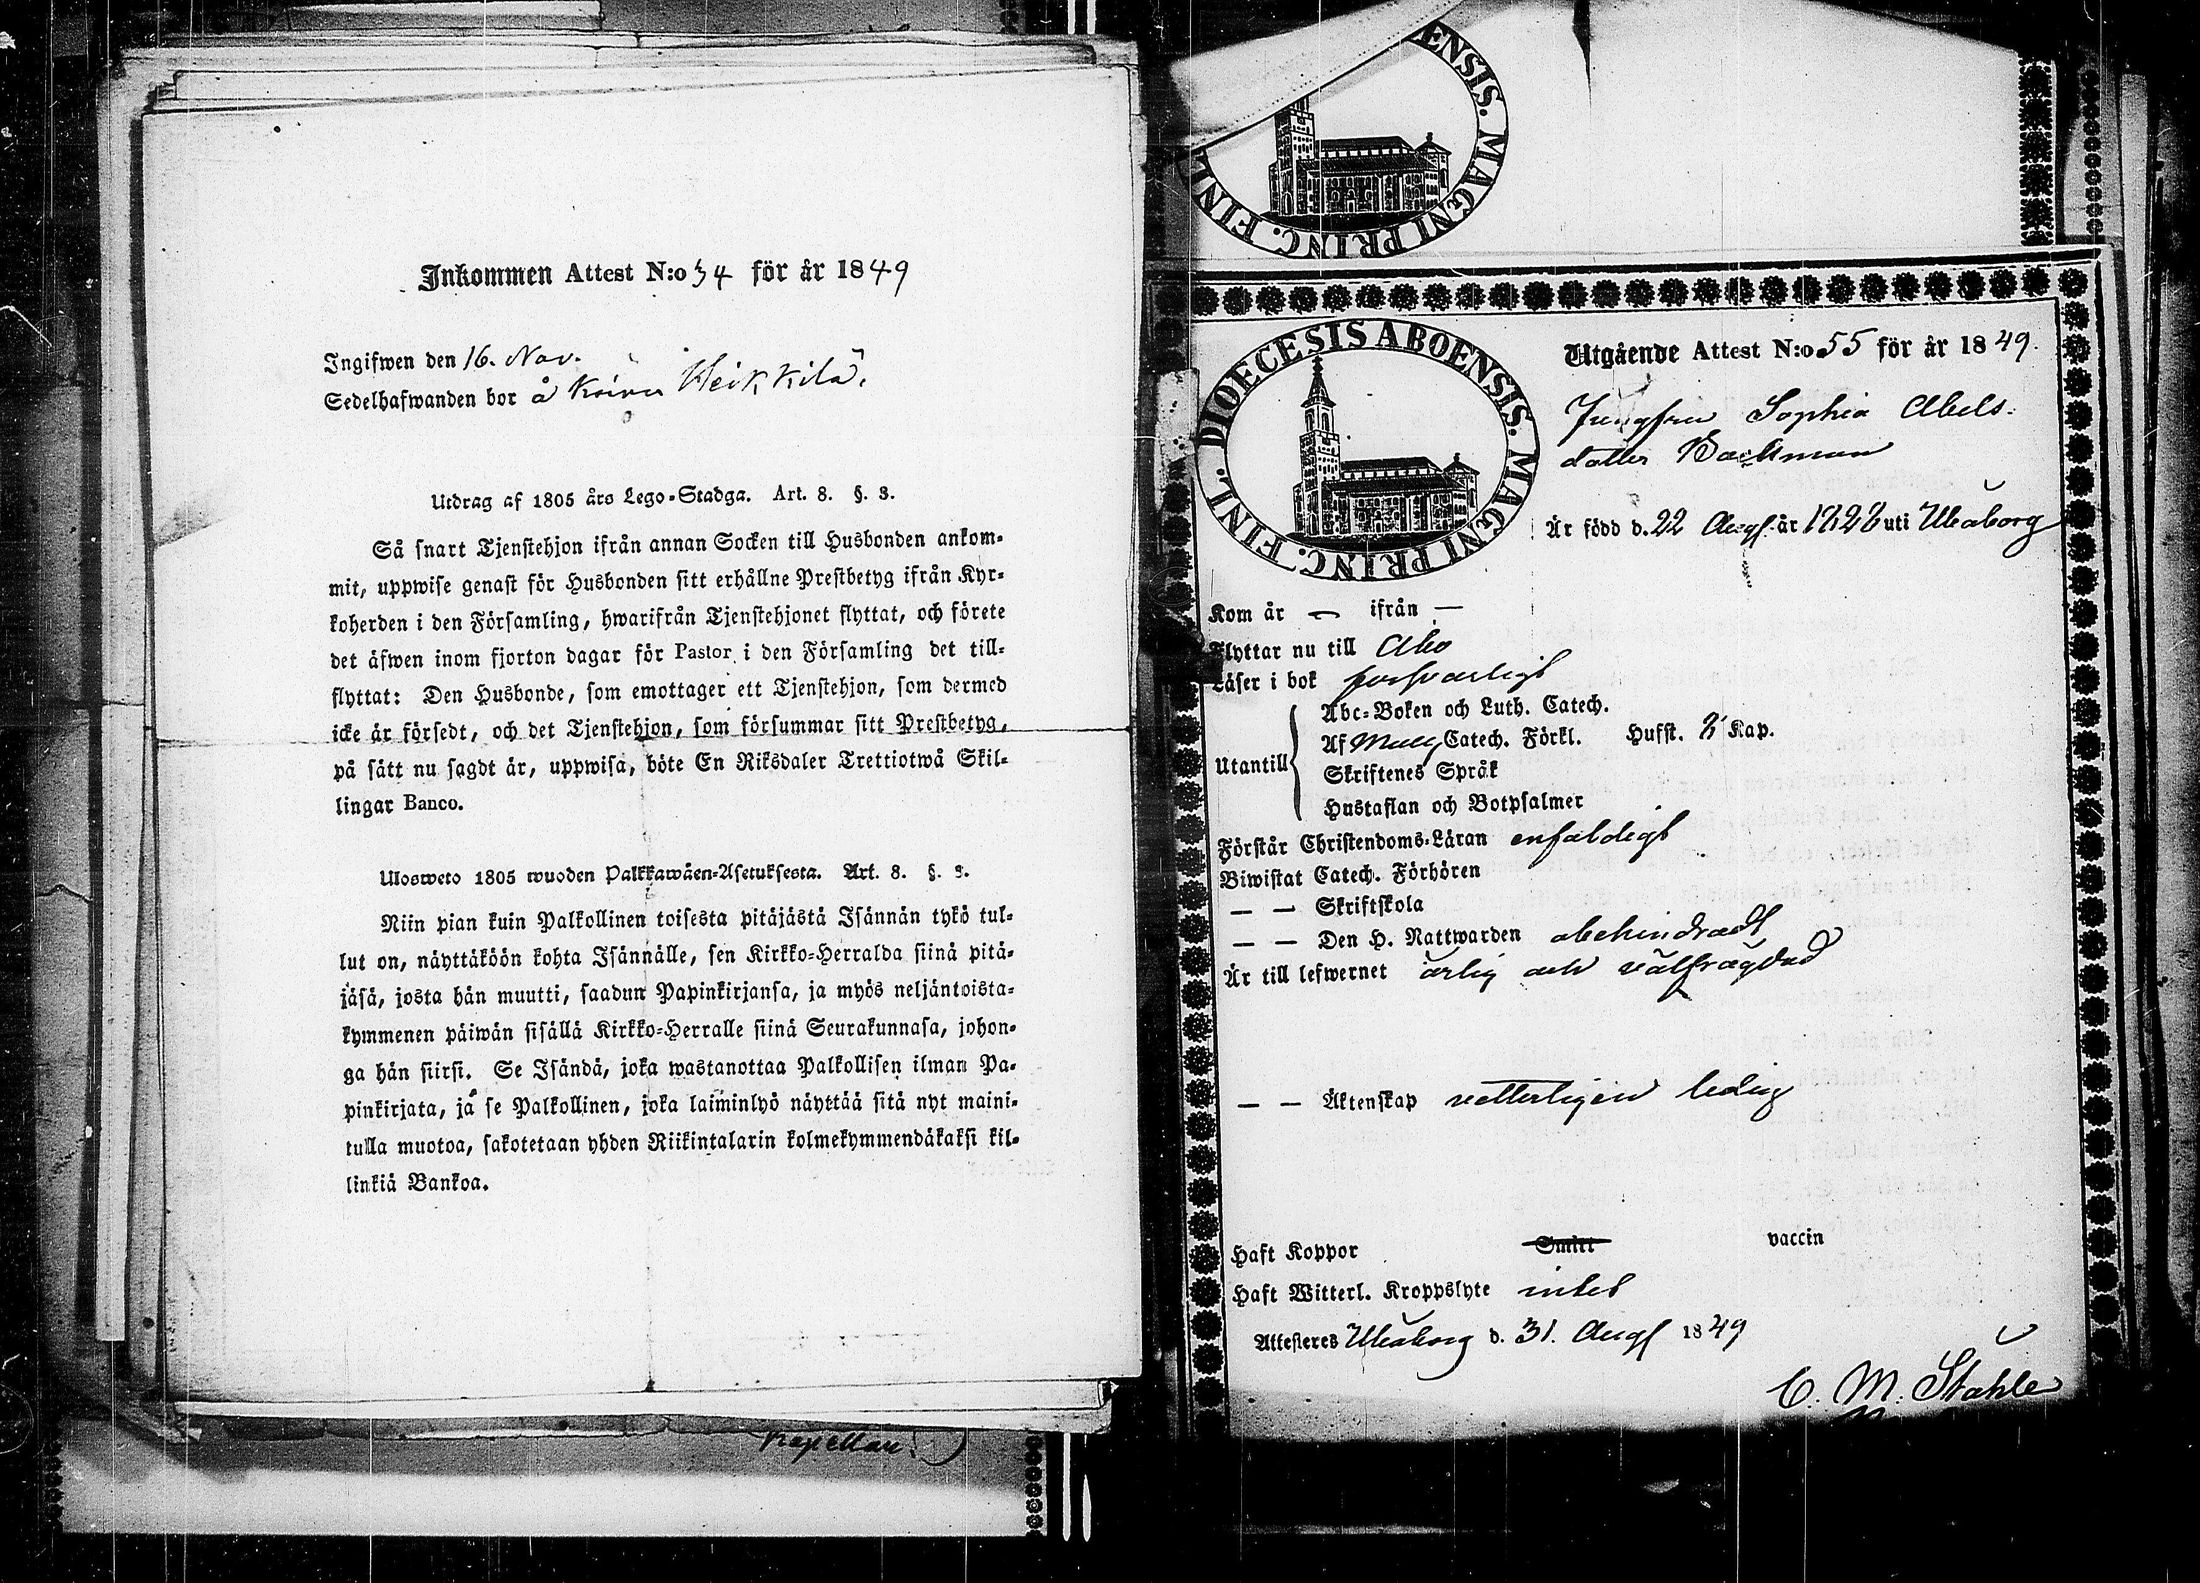 Inkommen Attest N:o 34 för år 1849
Ingifwen den 16. Nov.
Sedelhafwanden bor å Heikkilä.
Utdrag af 1805 års Lego-Stadga. Art. 8. §. 3.
Så snart Tjenstehjon ifrån annan Socken till Husbonden ankom-
mit, uppwise genast för Husbonden sitt erhållne Prestbetyg ifrån Kyr-
koherden i den Församling, hwarifrån Tjenstehjonet flyttat, och förete
det äfwen inom fjorton dagar för Pastor i den Församling det till-
flyttat: Den Husbonde, som emottager ett Tjenstehjon, som dermed
icke är försedt, och det Tjenstehjon, som försummar sitt Prestbetyg,
på sätt nu sagdt är, uppwisa, böte En Riksdaler Trettiotwå Skil-
lingar Banco.
Ulosweto 1805 wuoden Palkkawäen-Asetuksesta. Art. 8. §. 3.
Niin pian kuin Palkollinen toisesta pitäjästä Isännän tykö tul-
lut on, näyttäköön kohta Isännälle, sen Kirkko-Herralda siinä pitä-
jäsä, josta hän muutti, saadun Papinkirjansa, ja myös neljäntoista-
kymmenen päiwän sisällä Kirkko-Herralle siinä Seurakunnasa, johon-
ga hän siirsi. Se Isändä, joka wastanottaa Palkollisen ilman Pa-
pinkirjata, ja se Palkollinen, joka laiminlyö näyttää sitä nyt maini-
tulla muotoa, sakotetaan yhden Riikintalarin kolmekymmendäkaksi kil-
linkiä Bankoa.
Kapellan.
ENSIS. MAGNI PRINC. FINL.
DIOECESIS ABOENSIS. MAGNI PRINC. FINL.
Utgående Attest N:o 55 för år 1849.
Jungfru Sophia Abels-
dotter Backman
Är född d. 22 Aug. år 1828 uti Uleåborg
Kom år — ifrån —
Flyttar nu till Åbo
Läser i bok försvarligt
Abc-Boken och Luth. Catech.
Af Catech. Förkl. Husft. 2 Kap.
Utantill
Skriftenes Språk
Hustaflan och Botpsalmer
Förstår Christendoms-Läran enfaldigt
Biwistat Catech. Förhören
— — Skriftskola
— — Den H. Nattwarden obehindradt
Är till lefwernet ärlig och välfrägdad
— — Äktenskap vetterligen ledig
Haft Koppor Smitt vaccin
Haft Witterl. Kroppslyte intet
Attesteres Uleåborg d. 31. Aug 1849
C. M. Ståhle